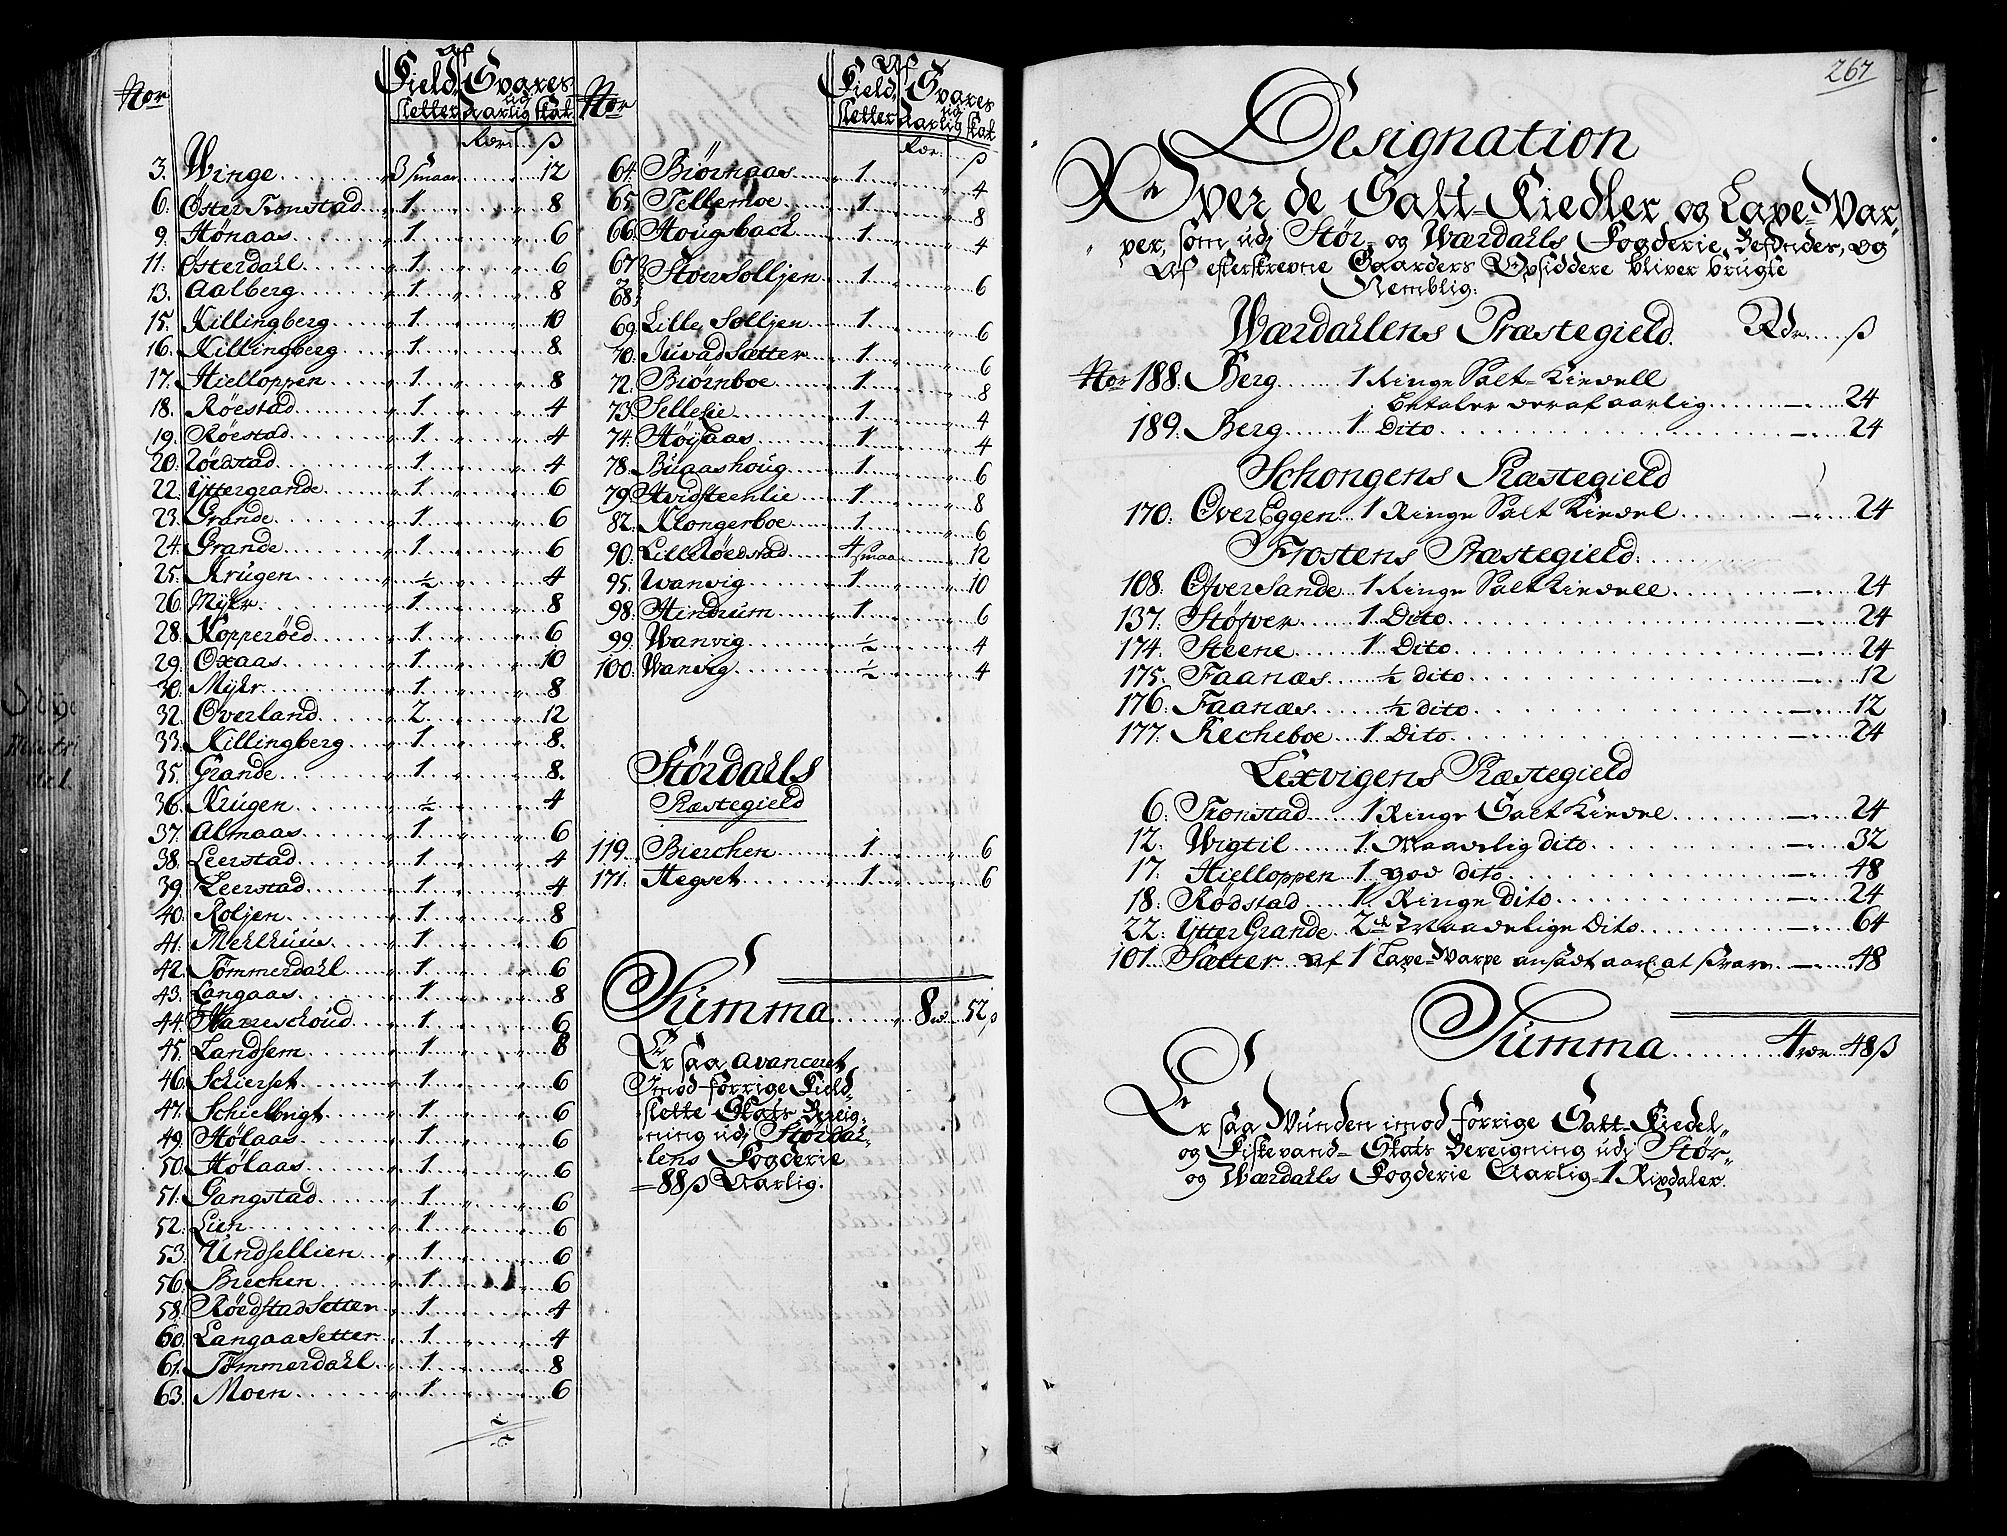 Nor
Af
Field- Svares
sletter Aarlig skat
Rdr: ß
3. Winge 3 smaae 12
6. Öster Tronstad 1 8
9. Hønaas 1 6
11. Österdahl 1 6
13. Aalberg 1 8
15. Killingberg 1 10
16. Killingberg 1 8
17. Hielloppen 1 8
18. Röestad 1 4
19. Röestad 1 4
20. Röedstad 1 4
22. Yttergrande 1 6
23. Grande 1 6
24. Grande 1 6
25. Krúgen ½ 4
26. Myhr 1 8
28. Kopperöed 1 6
29. Oxaas 1 10
30. Myhr 1 8
32. Overland 2 12
33. Killingberg 1 8
35. Grande 1 8
36. Krúgen ½ 4
37. Almaas 1 6
38. Leerstad 1 4
39. Leerstad 1 4
40. Roljen 1 8
41. Mehlhuus 1 6
42. Tømmerdahl 1 6
43. Langaas 1 8
44. Harreschoúd 1 6
45. Landsem 1 8
46. Schierset 1 6
47. Schielbrigt 1 6
49. Hølaas 1 6
50. Hølaas 1 6
51. Gangstad 1 6
52. Lien 1 6
53. Undsellien 1 6
56. Birchen 1 6
58. Röedstad Setter 1 4
60. Langaas Setter 1 4
61. Tømmerdahl 1 8
63. Moen 1 6
Nor
Af
Field- Svares
sletter Aarlig skat
Rdr: ß
64. Biörnaas 1 4
65. Tellemoe 1 8
66. Hougsbach 1 4
67.
68. Stor Solljen 1 6
69. Lille Solljen 1 6
70. Juvad Sætter 1 6
72. Biørnboe 1 8
73. Sellelie 1 4
74. Høyaas 1 4
78. Buaashoug 1 6
79. Hvidsteenlie 1 8
82. Klongerboe 1 6
90. Lille Röedstad 4 smaa 12
95. Wanvig 1 10
98. Hindrum 1 6
99. Wanvig ½ 4
100. Wanvig ½ 4
Størdahls
Præstegield
119. Bierchen 1 6
171. Hegset 1 6
Summa 8 rd 52 ß
Er saa avanceret
imod forrige Field-
slette Skats Bereig-
ning udj Størdah-
lens Fogderie
88 ß Aarlig.
267
Designation
Over de Salt-Kiedler og Laxe-Var-
per, som udj Stør- og Wærdahls Fogderie befindes, og
Af efterskrevne Gaarders Opsiddere bliver brugte
Nemblig:
Wærdahlens Præstegield. Rdr. ß
Nor 188. Berg 1 Ringe Salt-Kiedell
betaler deraf aarlig 24
189. Berg 1 Dito 24
Schongens Præstegield
170. Over Eggen 1 Ringe Salt Kiedel 24
Frostens Præstegield
108. Ofver Sande 1 Ringe Salt Kiedell 24
137. Støfver 1 Dito 24
174. Steene 1 Dito 24
175. Faanæs ½ dito 12
176. Faanæs ½ dito 12
177. Recheboe 1 Dito 24
Lexvigens Præstegield
6. Tronstad 1 Ringe Salt Kiedel 24
12. Wigtil 1 Maadelig dito 32
17. Hielloppen 1 god dito 48
18. Rödstad 1 Ringe Dito 24
22. Ytter Grande 2de Maadelige Dito 64
101. Sætter af 1 Laxe-Warpe ansadt aarl. at svare 48
Summa 4 rdr 48 ß
Er saa Vunden imod forrige Salt-Kiedel-
og Fiskevand- Skats Bereigning udj Stør-
og Wærdahls Fogderie Aarlig 1 Rixdaler.